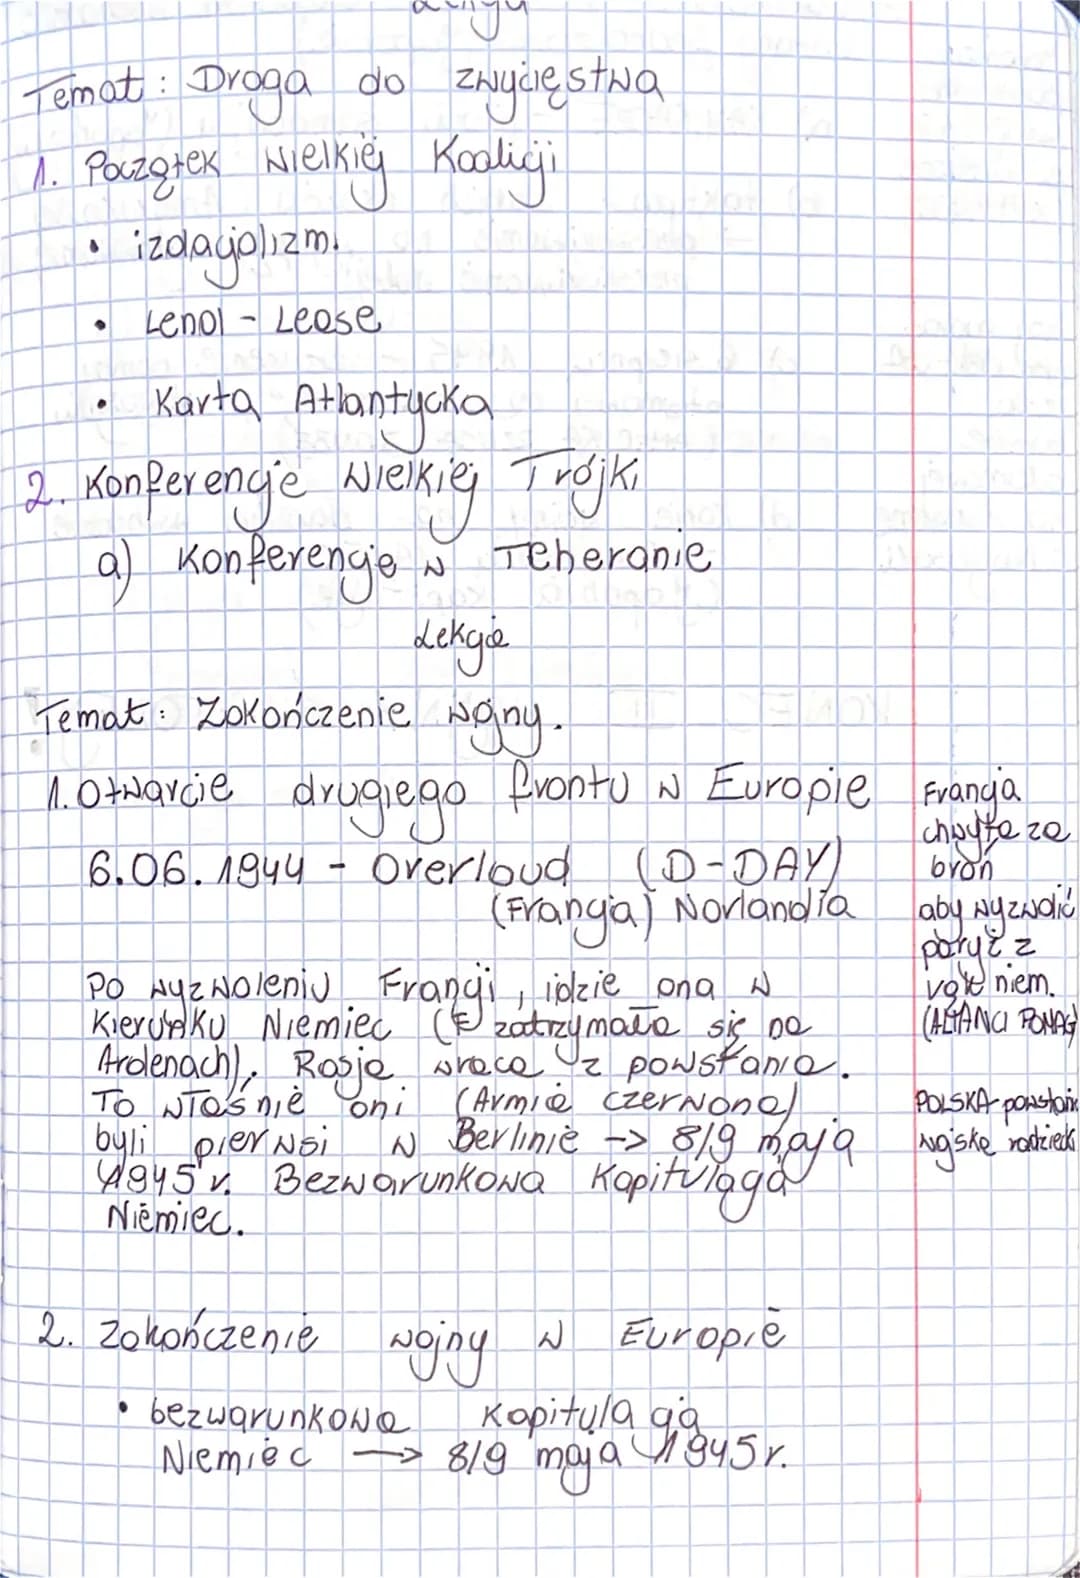 Temat: Droga do zwycięstwa
1. Początek Wielkiej Koalicji
• izolacjolizm.
• Lend - Lease
• Karta Atlantycka
2. Konferencje Wielkiej Trójki
a) Konferencje w Teheranie
Lekcja
Temat: Zakończenie wojny.
1. Otwarcie drugiego frontu w Europie
6.06.1944 - Overloud (D-DAY)
(Francja) Norlandia
Po wyzwoleniu Francji, idzie ona w
kierunku Niemiec (zatrzymała się na
Ardenach). Rosja wraca z powstania.
To właśnie oni (Armia czerwona)
byli pierwsi w Berlinie -> 8/9 maja
1945 r. Bezwarunkowa Kapitulacja
Niemiec.
Francja
chwyta za
broń
aby wyzwolić
paryż z
niem.
(ALIANCI POMAG
POLSKA - powstani
wojska radzieck
2. Zakończenie wojny w Europie
• bezwarunkowa kapitulacja
Niemiec → 8/9 maja 1945 r.